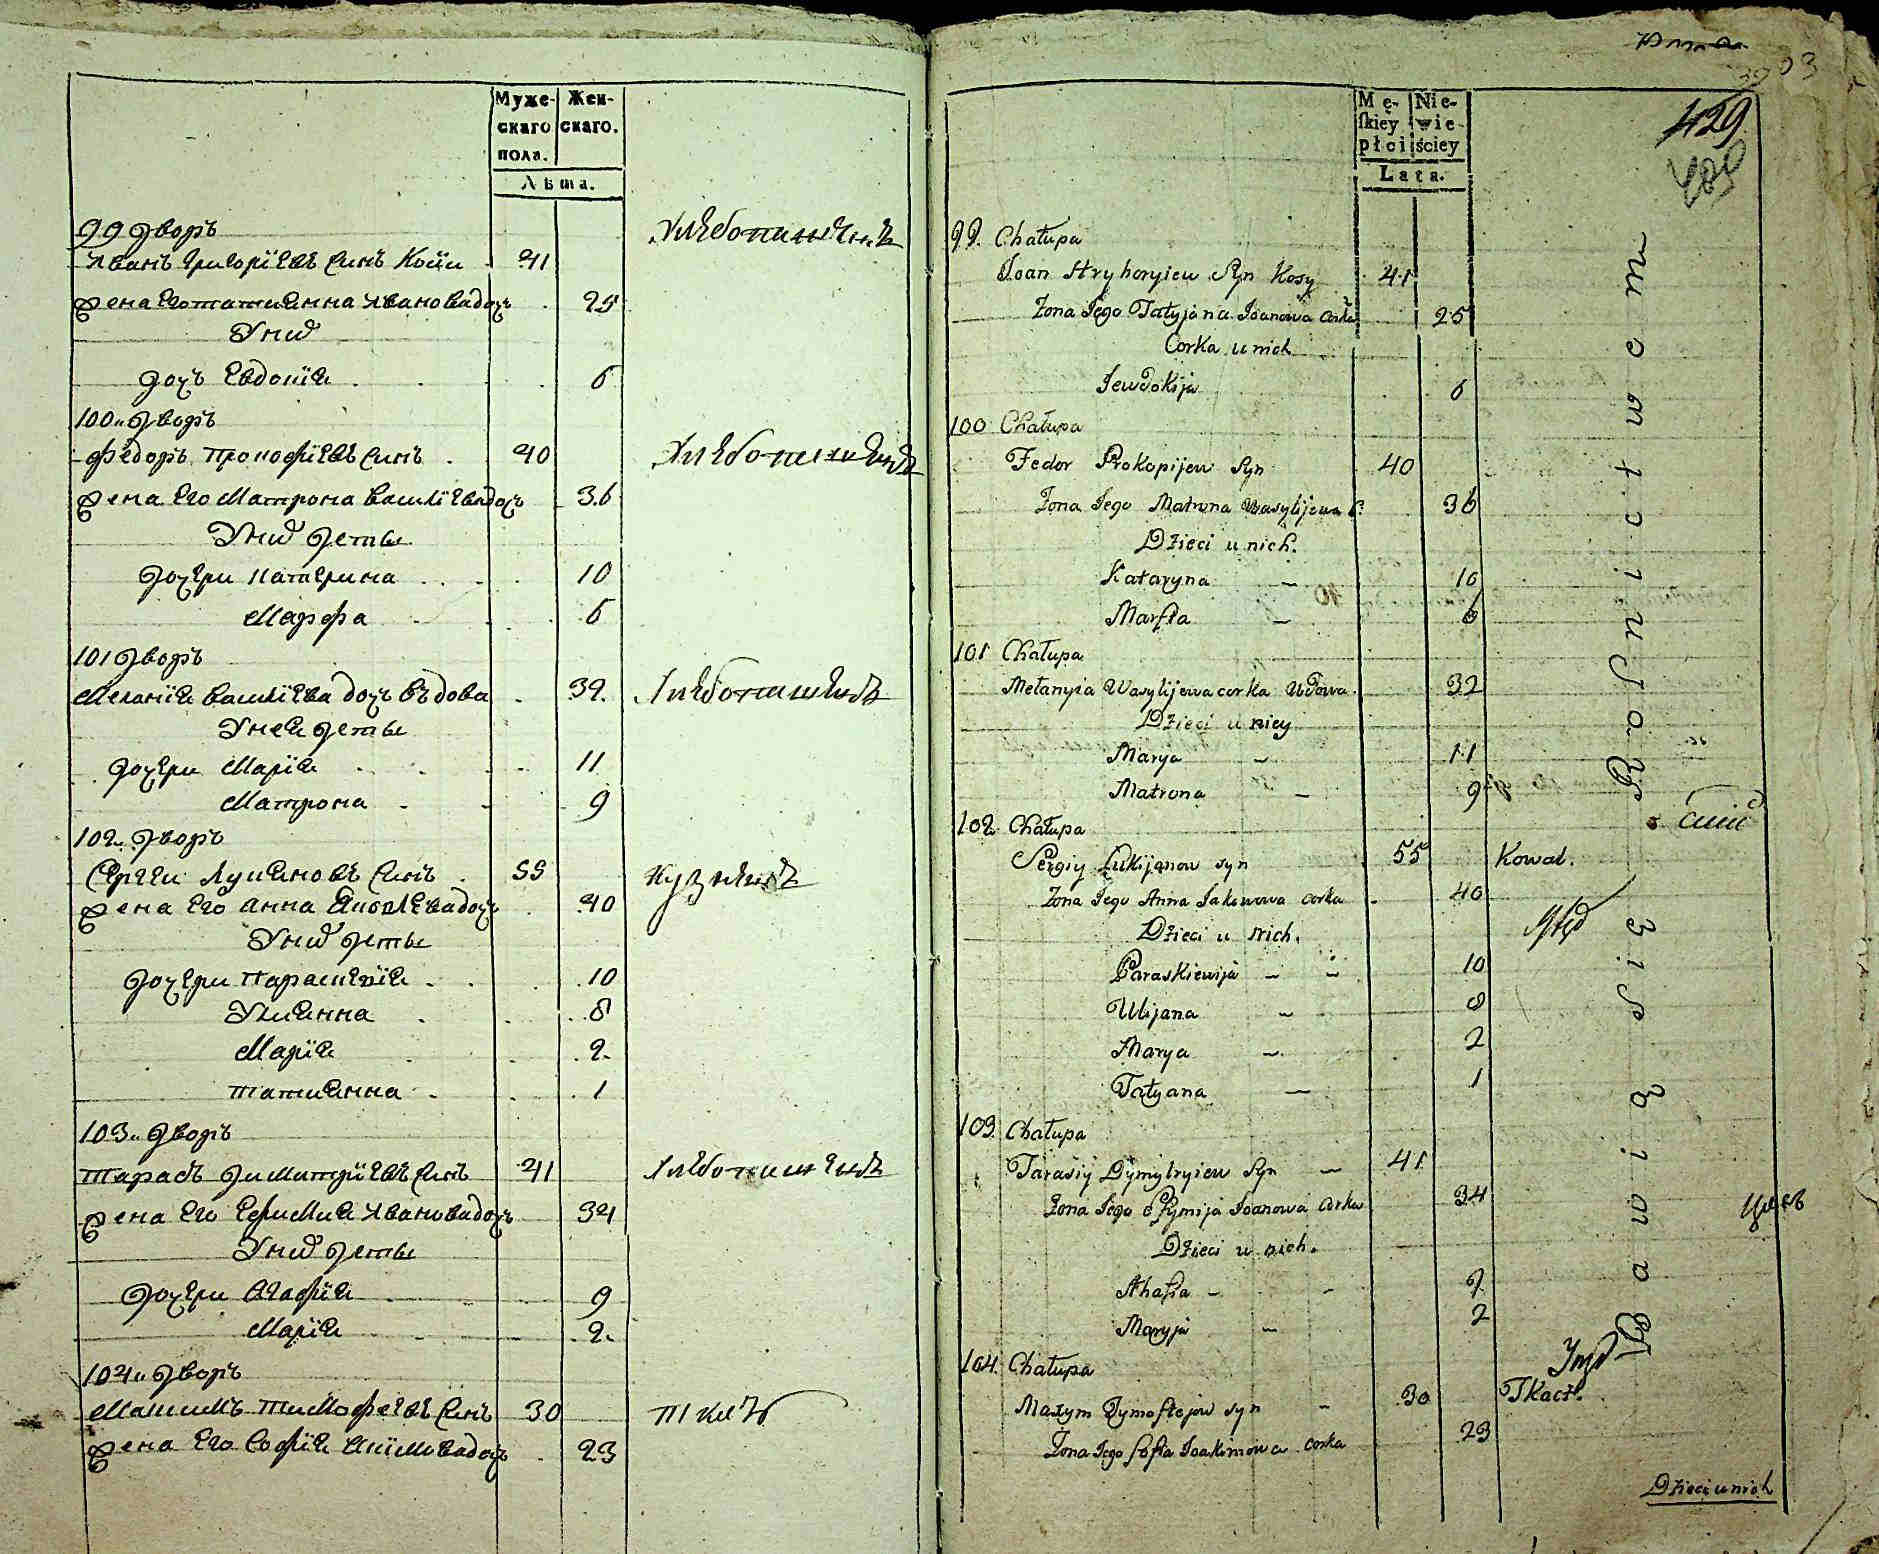 Муже-
скаго
пола.
Жен-
скаго.
Лѣта.
99 дворъ
Хлебопашецъ
Иванъ Григорїевъ синъ Косїи 41
жена Его татиянна Ивановa дочь 25
У ниѡ
дочъ Евдокїя 6
100 и дворъ
федоръ Прокофїевъ синъ 40
Хлебопашецъ
жена Его Матрона василїева дочъ 36
У ниѡ дети
дочери Катерина 10
Марфа 6
101 дворъ
Меланїя василїева дочъ въдова 32
Хлебопашецъ
У неи дети
дочери Марїя 11
Матрона 9
102 и дворъ
Сергеи Лукяновъ синъ 55
кузнецъ
жена Его анна Яковлева дочъ 40
У ниѡ дети
дочери Параскевїя 10
Улиянна 8
Марїя 2
татиянна 1
103 и дворъ
тарасъ димитрїевъ синъ 41
Хлебопашецъ
жена Его Ефимия Иванова дочъ 34
У ниѡ дети
дочери Агафїя 9
Марїя 2
104 и дворъ
Максимъ тимофеевъ синъ 30
ткачъ
жена Его София Якимова дочъ 23
03
429
Mę-
skiey
płci
Nie-
wie
ściey
Lata.
99. Chałupa
Joan Hryhoryiew Syn Kosy 41
Żona Jego Tatyjana Joanowa Corka 25
Corka u nich
Jewdokija 6
100 Chałupa
Fedor Prokopijew Syn 40
Żona Jego Matrona Wasylijewa C. 36
Dzieci u nich.
Kataryna 10
Marfta 6
101 Chałupa
Mełanyia Wasylijewa corka Wdowa. 32
Dzieci u niey
Marya 11
Matrona 9
102. Chałupa
Sergiy Łukijanow syn 55 Kowal.
Żona Jego Anna Jakowowa corka 40
Dzieci u nich.
Paraskiewija 10
Ulijana 8
Marya 2
Tatyana 1
103. Chałupa
Tarasiy Dymytryiew Syn 41
Żona Jego Efymija Joanowa Corka 34
Dzieci u nich.
Ahafia 9
Maryja 2
104. Chałupa
Maxym Tymoftejow syn 30 Tkacz.
Żona Jego Sofia Joakimowa corka 23
Dzieci u nich